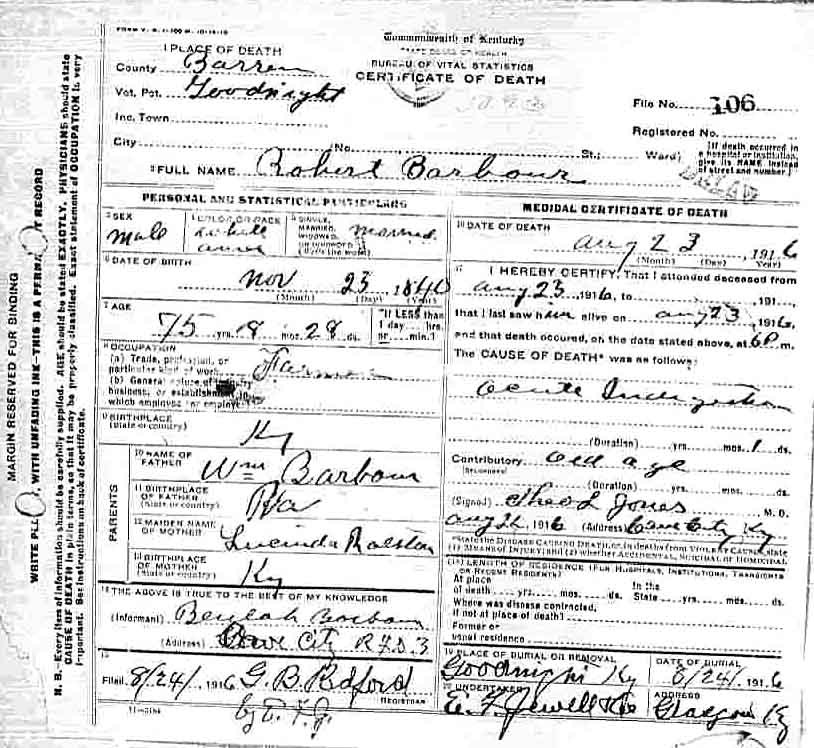 FORM V. S. 1-100 M. 10-14-15
Commonwealth of Kentucky
STATE BOARD OF HEALTH
BUREAU OF VITAL STATISTICS
CERTIFICATE OF DEATH
1 PLACE OF DEATH
County Barren
Vot. Pct. Goodnight
Inc. Town
City No. St.; Ward)
File No. 106
Registered No.
[If death occurred in a hospital or institution, give its NAME instead of street and number.]
2 FULL NAME Robert Barbour
PERSONAL AND STATISTICAL PARTICULARS
3 SEX Male
4 COLOR OR RACE
5 SINGLE, MARRIED, WIDOWED, OR DIVORCED (Write the word) Married
6 DATE OF BIRTH
Nov 23 1840
(Month) (Day) (Year)
7 AGE
75 yrs. 8 mos. 28 ds.
If LESS than 1 day hrs. or min.?
8 OCCUPATION
(a) Trade, profession, or particular kind of work Farmer
(b) General nature of industry, business, or establishment in which employed (or employer)
9 BIRTHPLACE
(State or country) Ky
PARENTS
10 NAME OF FATHER Wm Barbour
11 BIRTHPLACE OF FATHER (State or country) Va
12 MAIDEN NAME OF MOTHER Lucinda Ralston
13 BIRTHPLACE OF MOTHER (State or country) Ky
14 THE ABOVE IS TRUE TO THE BEST OF MY KNOWLEDGE
(Informant) Beulah Barbour
(Address) Cave City R.F.D. 3
15
Filed 8/24/ 1916 G. B. Redford
REGISTRAR
11-3184
MEDICAL CERTIFICATE OF DEATH
16 DATE OF DEATH
Aug 23, 1916
(Month) (Day) (Year)
17 I HEREBY CERTIFY, That I attended deceased from
Aug 23, 1916, to , 191
that I last saw him alive on Aug 23, 1916,
and that death occured, on the date stated above, at 6 P m.
The CAUSE OF DEATH* was as follows:
Acute Indigestion
(Duration) yrs. mos. 1 ds.
Contributory Old age
(SECONDARY)
(Duration) yrs. mos. ds.
(Signed) Theo L Jones M. D.
1916 (Address) Cave City Ky
*State the DISEASE CAUSING DEATH, or, in deaths from VIOLENT CAUSES, state
(1) MEANS OF INJURY; and (2) whether ACCIDENTAL, SUICIDAL or HOMICIDAL.
18 LENGTH OF RESIDENCE (FOR HOSPITALS, INSTITUTIONS, TRANSIENTS OR RECENT RESIDENTS)
At place of death yrs. mos. ds. In the State yrs. mos. ds.
Where was disease contracted,
if not at place of death?
Former or
usual residence
19 PLACE OF BURIAL OR REMOVAL
Goodnight Ky
DATE OF BURIAL
8/24/, 1916
20 UNDERTAKER
E. F. Jewell
ADDRESS
Glasgow Ky
MARGIN RESERVED FOR BINDING
WRITE PL , WITH UNFADING INK—THIS IS A PERMA T RECORD
N. B.—Every item of information should be carefully supplied. AGE should be stated EXACTLY. PHYSICIANS should state
CAUSE OF DEATH in plain terms, so that it may be properly classified. Exact statement of OCCUPATION is very
important. See instructions on back of certificate.